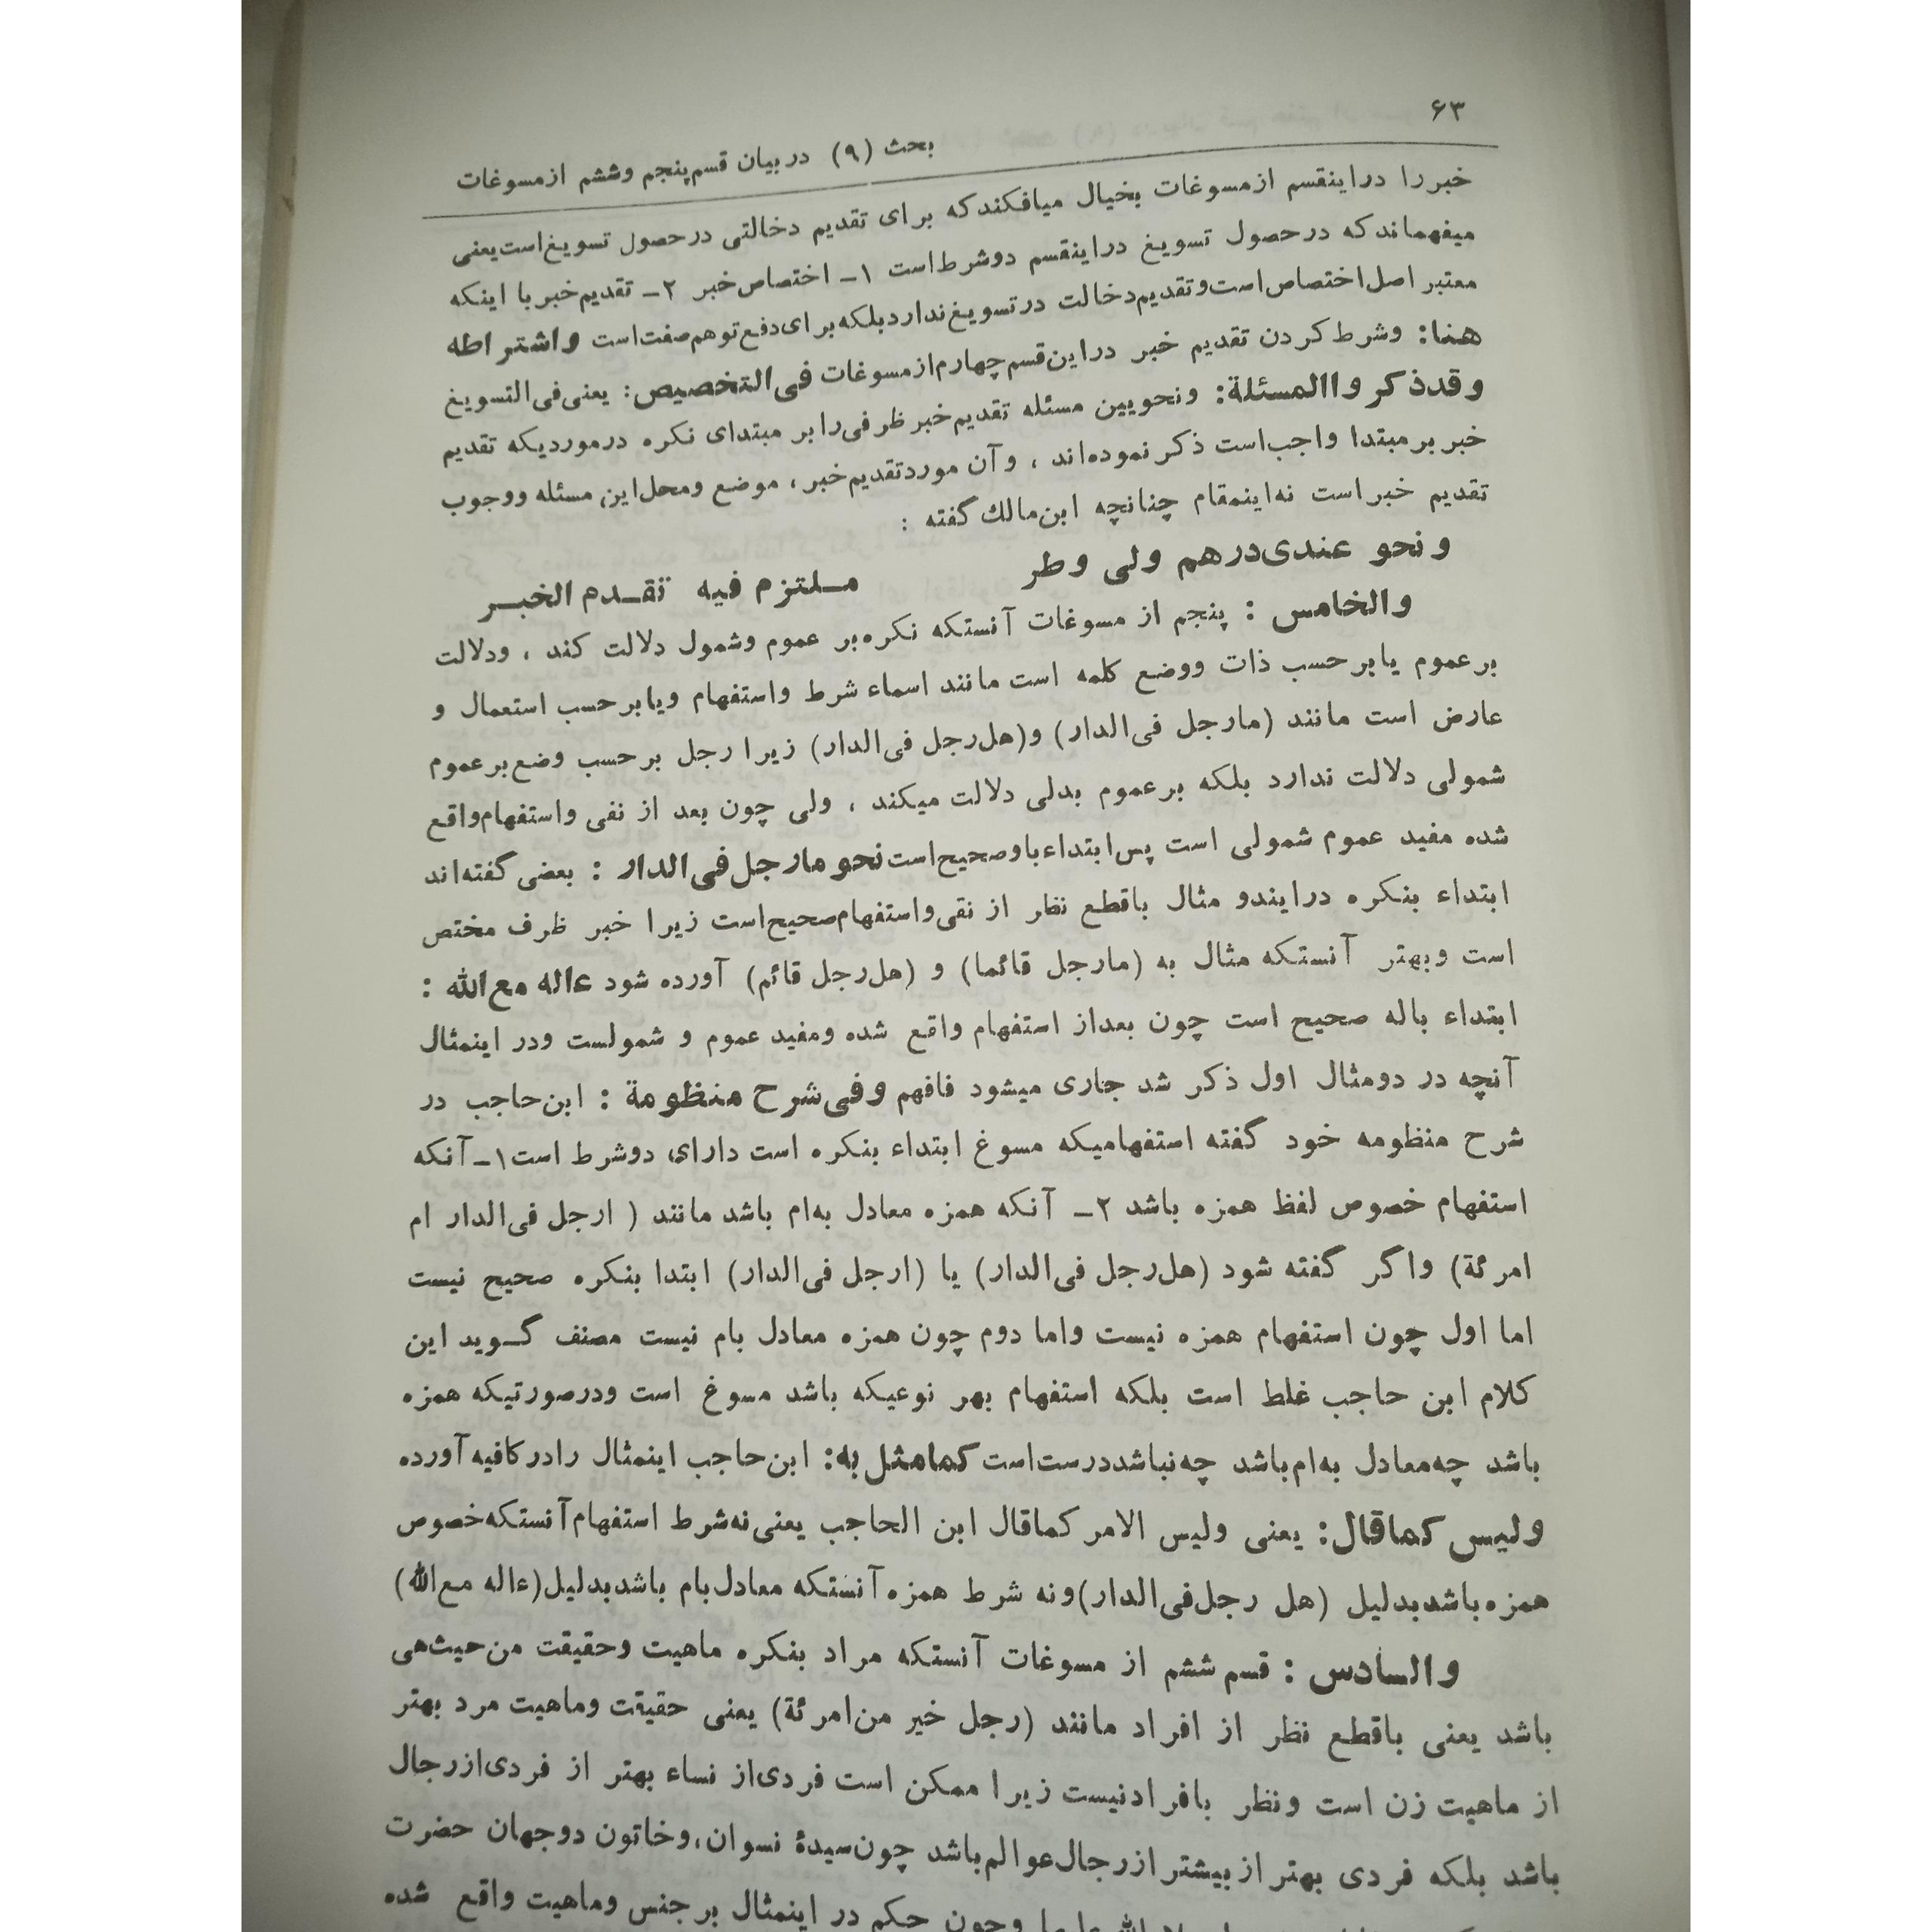 ۶۳
بحث (۹) در بیان قسم پنجم وششم ازمسوغات
خبررا دراینقسم ازمسوغات بخیال میافکندکه برای تقدیم دخالتی درحصول تسویغ‌است‌یعنی
میفهماندکه درحصول تسویغ دراینقسم دوشرط‌است ۱- اختصاص‌خبر ۲- تقدیم‌خبربا اینکه
معتبر اصل‌اختصاص‌است‌وتقدیم‌دخالت درتسویغ‌نداردبلکه‌برای‌دفع‌توهم‌صفت‌است واشتراطه
هنا: وشرط‌کردن تقدیم خبر دراین‌قسم‌چهارم‌ازمسوغات فی‌التخصیص: یعنی‌فی‌التسویغ
وقدذکرواالمسئلة: ونحویین مسئله تقدیم‌خبر ظرفی‌رابر مبتدای نکره درموردیکه تقدیم
خبربرمبتدا واجب‌است ذکرنموده‌اند ، وآن موردتقدیم‌خبر، موضع ومحل‌این مسئله ووجوب
تقدیم خبراست نه‌اینمقام چنانچه ابن‌مالك‌گفته :
ونحو عندی‌درهم ولی وطر
ملتزم فیه تقدم الخبر
والخامس : پنجم از مسوغات آنستکه نکره‌بر عموم وشمول دلالت کند ، ودلالت
برعموم یابرحسب ذات ووضع کلمه است مانند اسماء شرط واستفهام ویابرحسب استعمال و
عارض است مانند (مارجل فی‌الدار) و(هل‌رجل فی‌الدار) زیرا رجل برحسب وضع‌برعموم
شمولی دلالت ندارد بلکه برعموم بدلی دلالت میکند ، ولی چون بعد از نفی واستفهام‌واقع
شده مفید عموم شمولی است پس‌ابتداءباوصحیح‌است‌نحومارجل‌فی‌الدار : بعضی‌گفته‌اند
ابتداء بنکره درایندو مثال باقطع نظر از نفی‌واستفهام‌صحیح‌است زیرا خبر ظرف مختص
است وبهتر آنستکه مثال به (مارجل قائما) و (هل‌رجل قائم) آورده شود ءاله مع‌الله :
ابتداء باله صحیح است چون بعداز استفهام واقع شده ومفید عموم و شمولست ودر اینمثال
آنچه در دومثال اول ذکر شد جاری میشود فافهم وفی‌شرح منظومة : ابن‌حاجب در
شرح منظومه خود گفته استفهامیکه مسوغ ابتداء بنکره است دارای دوشرط است۱-آنکه
استفهام خصوص لفظ همزه باشد ۲- آنکه همزه معادل به‌ام باشد مانند ( ارجل فی‌الدار ام
امرئة) واگر گفته شود (هل‌رجل فی‌الدار) یا (ارجل فی‌الدار) ابتدا بنکره صحیح نیست
اما اول چون استفهام همزه نیست واما دوم چون همزه معادل بام نیست مصنف گوید این
کلام ابن حاجب غلط است بلکه استفهام بهر نوعیکه باشد مسوغ است ودرصورتیکه همزه
باشد چه‌معادل به‌ام‌باشد چه‌نباشددرست‌است کمامثل‌به: ابن‌حاجب اینمثال رادرکافیه‌آورده
ولیس کماقال: یعنی ولیس الامر کماقال ابن الحاجب یعنی‌نه‌شرط استفهام‌آنستکه‌خصوص
همزه‌باشدبدلیل (هل رجل‌فی‌الدار)ونه شرط همزه‌آنستکه معادل‌بام باشدبدلیل(ءاله مع‌الله)
والسادس : قسم ششم از مسوغات آنستکه مراد بنکره ماهیت وحقیقت من‌حیث‌هی
باشد یعنی باقطع نظر از افراد مانند (رجل خیر من‌امرئة) یعنی حقیقت وماهیت مرد بهتر
از ماهیت زن است ونظر بافرادنیست زیرا ممکن است فردی‌از نساء بهتر از فردی‌ازرجال
باشد بلکه فردی بهتر از بیشتر ازرجال‌عوالم‌باشد چون‌سیدهٔ نسوان،وخاتون دوجهان حضرت
وچون حکم در اینمثال برجنس وماهیت واقع شده